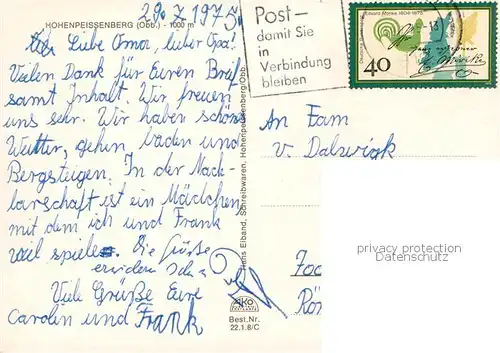 HOHENPEISSENBERG (Obb.) - 1000 m
29. 7. 1975
Liebe Oma, lieber Opa!
Vielen Dank für Euren Brief
samt Inhalt. Wir freuen
uns sehr. Wir haben schönes
Wetter, gehen baden und
Bergsteigen. In der Nach-
barschaft ist ein Mädchen,
mit dem ich und Frank
viel spielen. Die Grüße
Viele Grüße Eure
Carolin und Frank
Hans Elband, Schreibwaren, Hohenpeissenberg/Obb.
AKO
Best.Nr.
22.1.8/C
Post –
damit Sie
in
Verbindung
bleiben
Eduard Mörike 1804-1875
40
An Fam
v. Dalwigk
privacy protection
Datenschutz